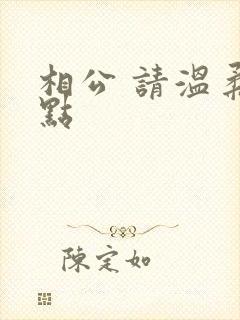 相公 請溫柔
點
陳定如